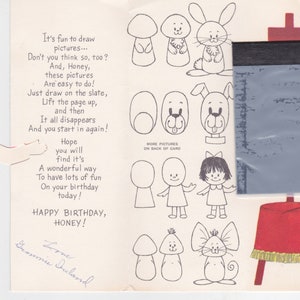 It's fun to draw
pictures...
Don't you think so, too?
And, Honey,
these pictures
Are easy to do!
Just draw on the slate,
Lift the page up,
and then
It all disappears
And you start in again!
Hope
you will
find it's
A wonderful way
To have lots of fun
On your birthday
today!
HAPPY BIRTHDAY,
HONEY!
Love
Grammie
MORE PICTURES
ON BACK OF CARD